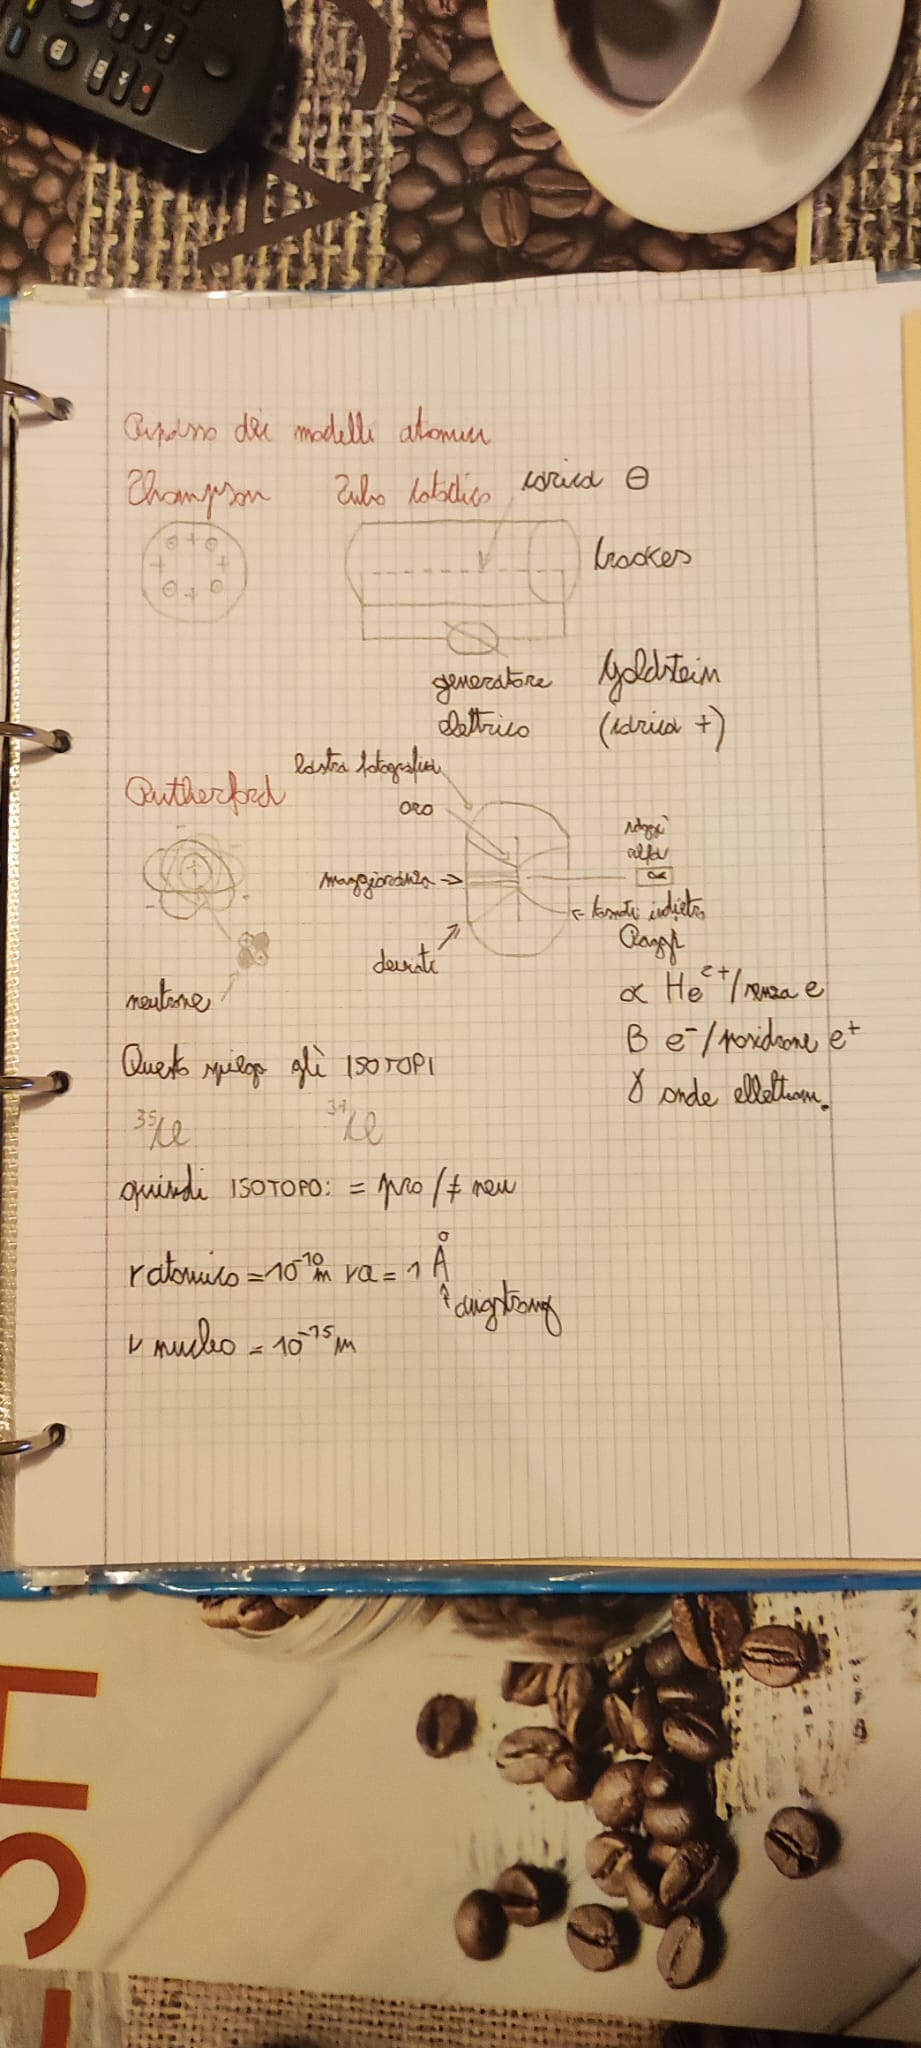 Ripasso dei modelli atomici
Thompson Tubo catodico carica ⊖
Crookes
generatore
elettrico
Goldstein
(carica +)
Rutherford
lastra fotografica
oro
maggioranza →
deviati
raggi
alfa
α
← tornati indietro
neutrone
Raggi
α He²⁺/senza e
B e⁻/posidrone e⁺
γ onde ellettrom.
Questo spiega gli ISOTOPI
³⁵Cl ³⁷Cl
quindi ISOTOPO: = pro/≠ neu
r atomico = 10⁻¹⁰ m ra = 1 Å
↑ angstrong
r nucleo = 10⁻¹⁵ m